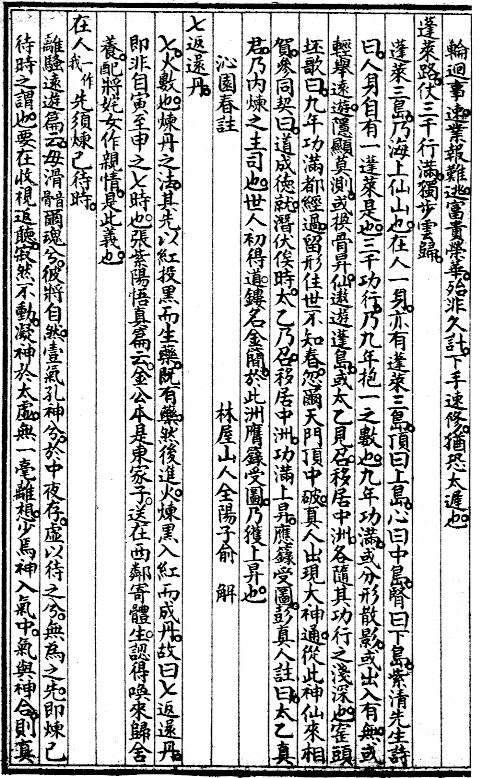 輪迴事速業報難逃富貴榮華殆非久計下手速修猶恐太遲也
蓬萊路伏三千行滿獨步雲歸
蓬萊三島乃海上仙山也在人一身亦有蓬萊三島頂曰上島心曰中島腎曰下島紫清先生詩
曰人身自有一蓬萊是也三千功行乃九年抱一之數也九年功滿或分形散影或出入有無或
輕舉遠遊隱顯莫測或換骨昇仙遨遊蓬島或太乙見召移居中洲各隨其功行之淺深也窑頭
坯歌曰九年功滿都經過留形住世不知春忽爾天門頂中破真人出現大神通從此神仙來相
賀參同契曰道成德就潛伏俟時太乙乃召移居中洲功滿上昇應籙受圖彭真人註曰太乙真
君乃內煉之主司也世人初得道鏤名金簡於此洲膺籙受圖乃獲上昇也
沁園春註
林屋山人全陽子俞　解
七返還丹
七火數也煉丹之法其先以紅投黑而生藥既有藥然後進火煉黑入紅而成丹故曰七返還丹
即非自寅至申之七時也張紫陽悟真篇云金公本是東家子送在西鄰寄體生認得喚來歸舍
養配將姹女作親情是此義也
在人我一作先須煉己待時
離騷遠遊篇云毋滑䯏爾魂兮彼將自然壹氣孔神兮於中夜存虛以待之兮無為之先即煉己
待時之謂也要在收視返聽寂然不動凝神於太虛無一毫雜想少焉神入氣中氣與神合則真